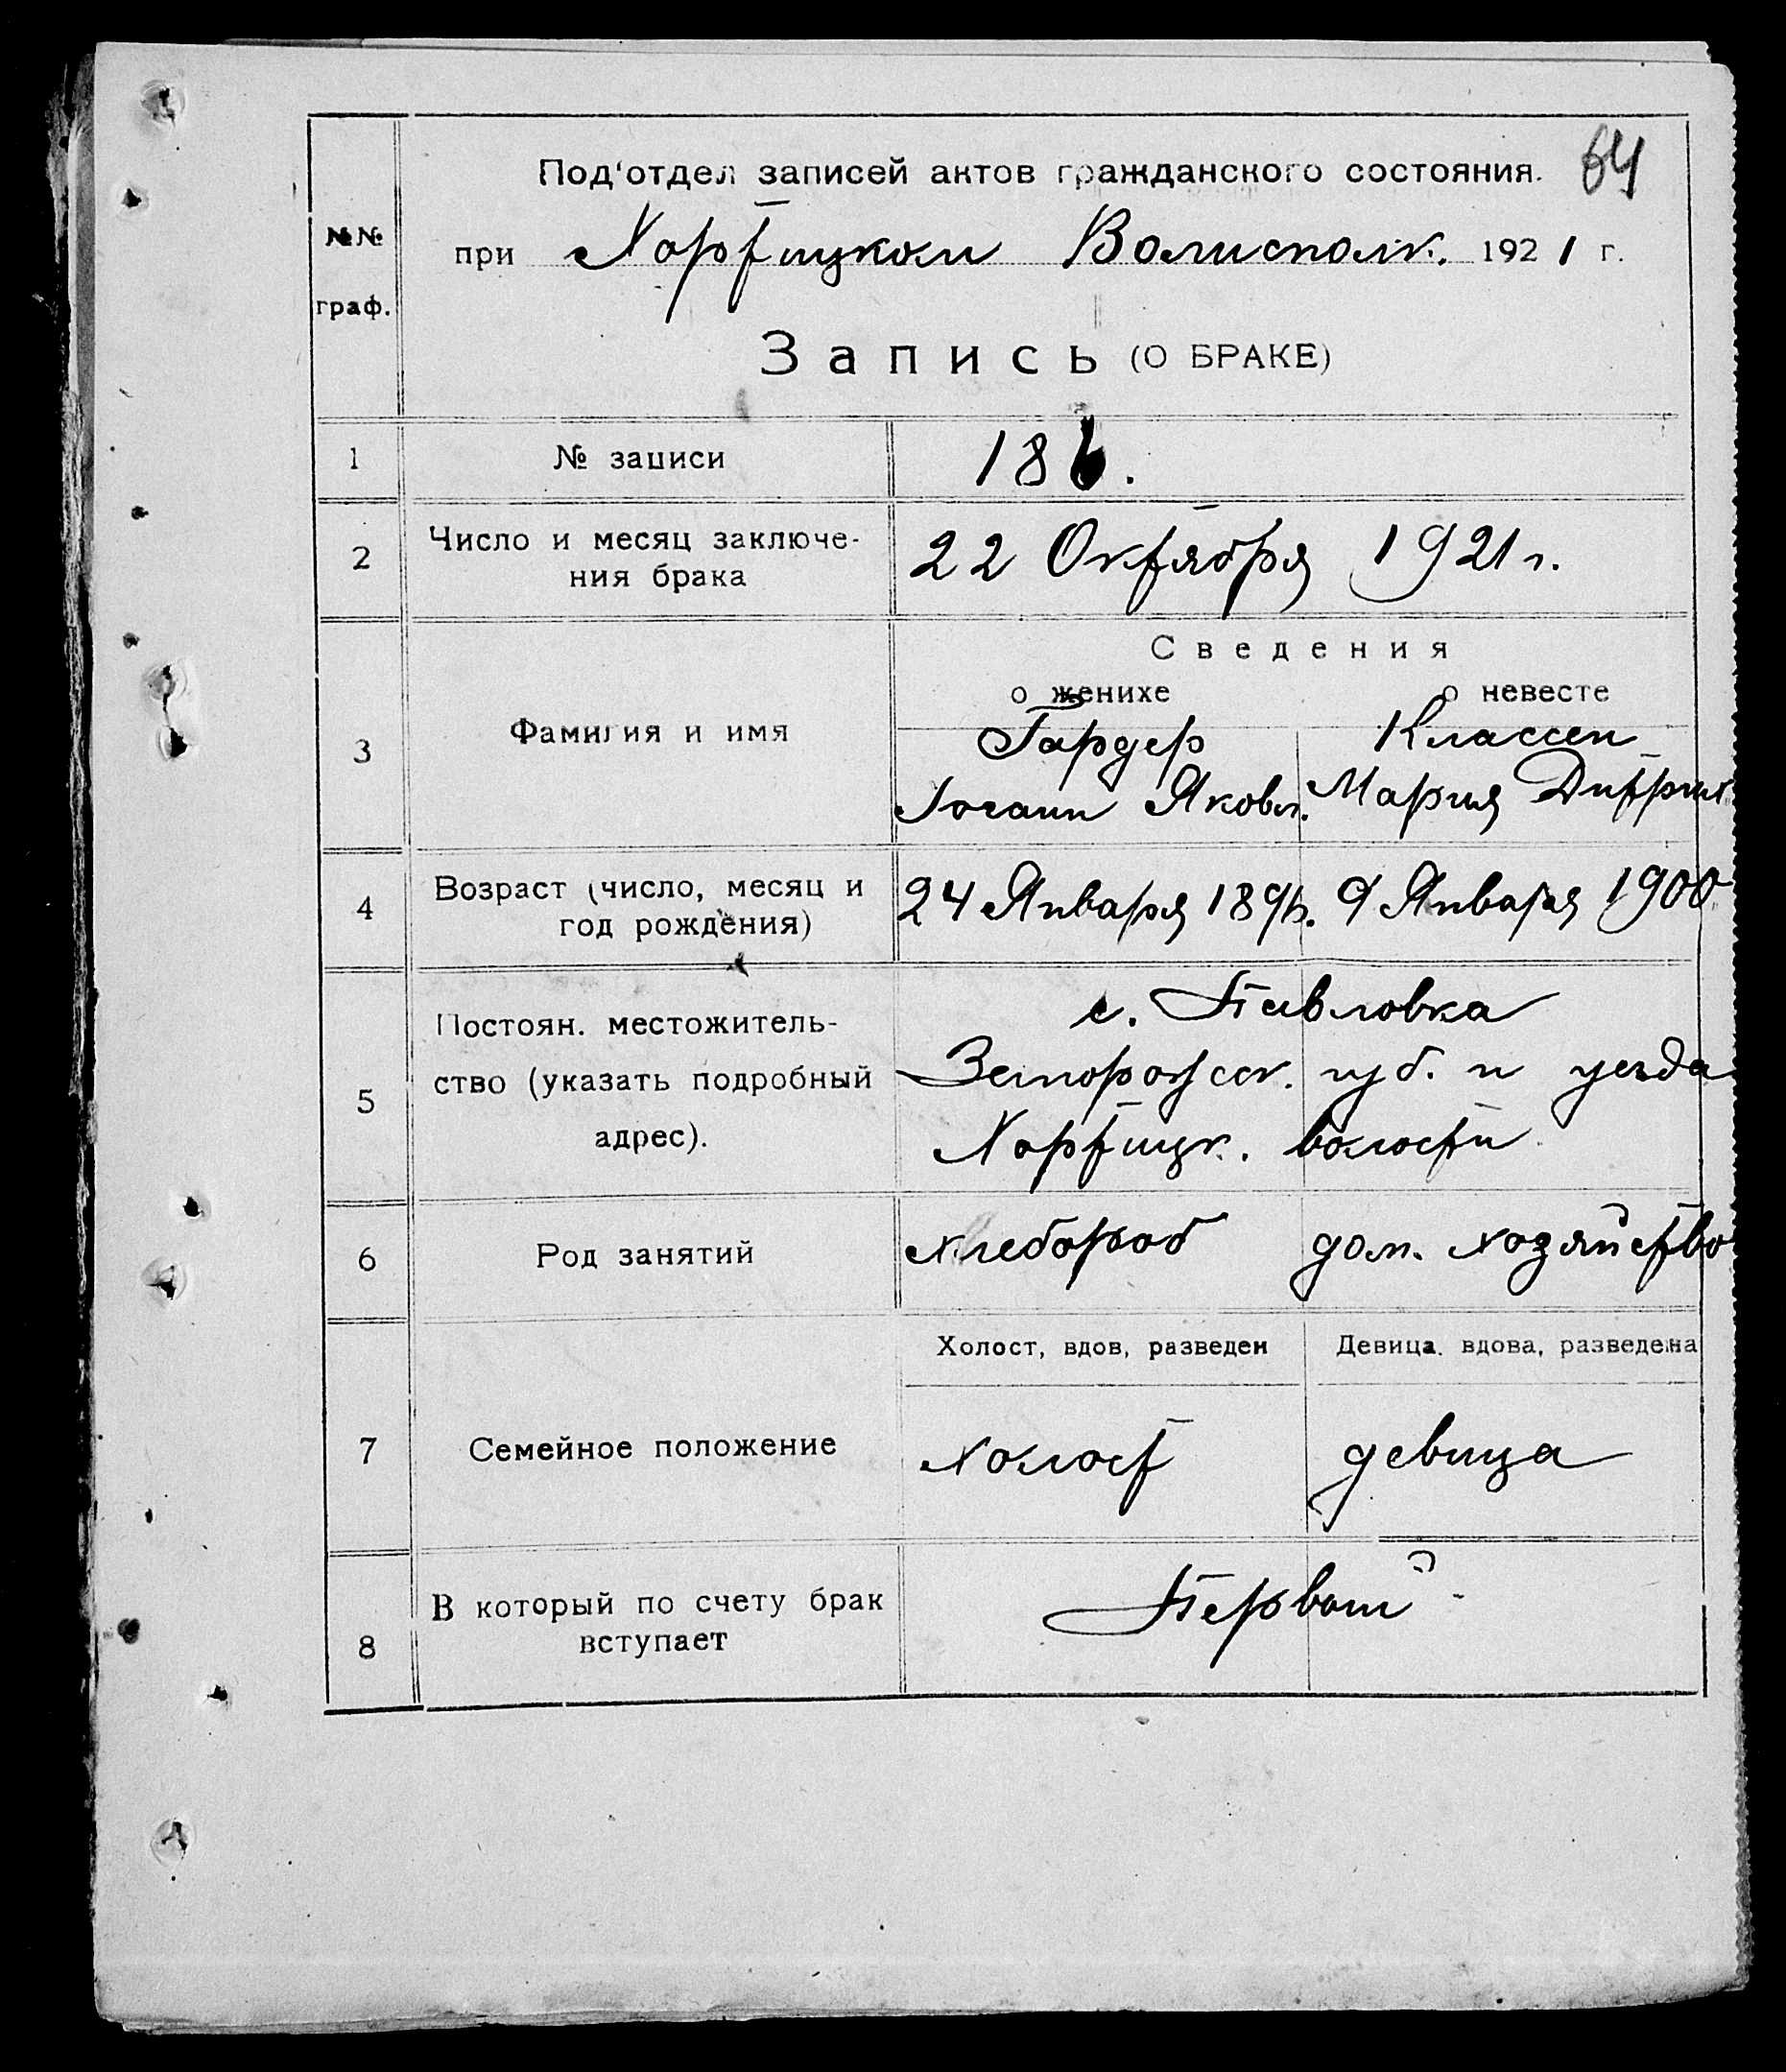 64
Под'отдел записей актов гражданского состояния.
№№
граф.
при Хортицком Волисполк. 1921 г.
Запись (О БРАКЕ)
1 № записи 186.
2 Число и месяц заключе-
ния брака
22 Октября 1921 г.
Сведения
о женихе о невесте
3 Фамилия и имя
Гардер Классен
Іоганн Яковл. Мария Дитрих
4 Возраст (число, месяц и
год рождения)
24 Января 1896. 9 Января 1900
5 Постоян. местожитель-
ство (указать подробный
адрес).
с. Павловка
Запорожск. губ. и уезда
Хортицк. волости
6 Род занятий хлебороб дом. хозяйство
Холост, вдов, разведен Девица. вдова, разведена
7 Семейное положение холост девица
8 В который по счету брак
вступает
Первый